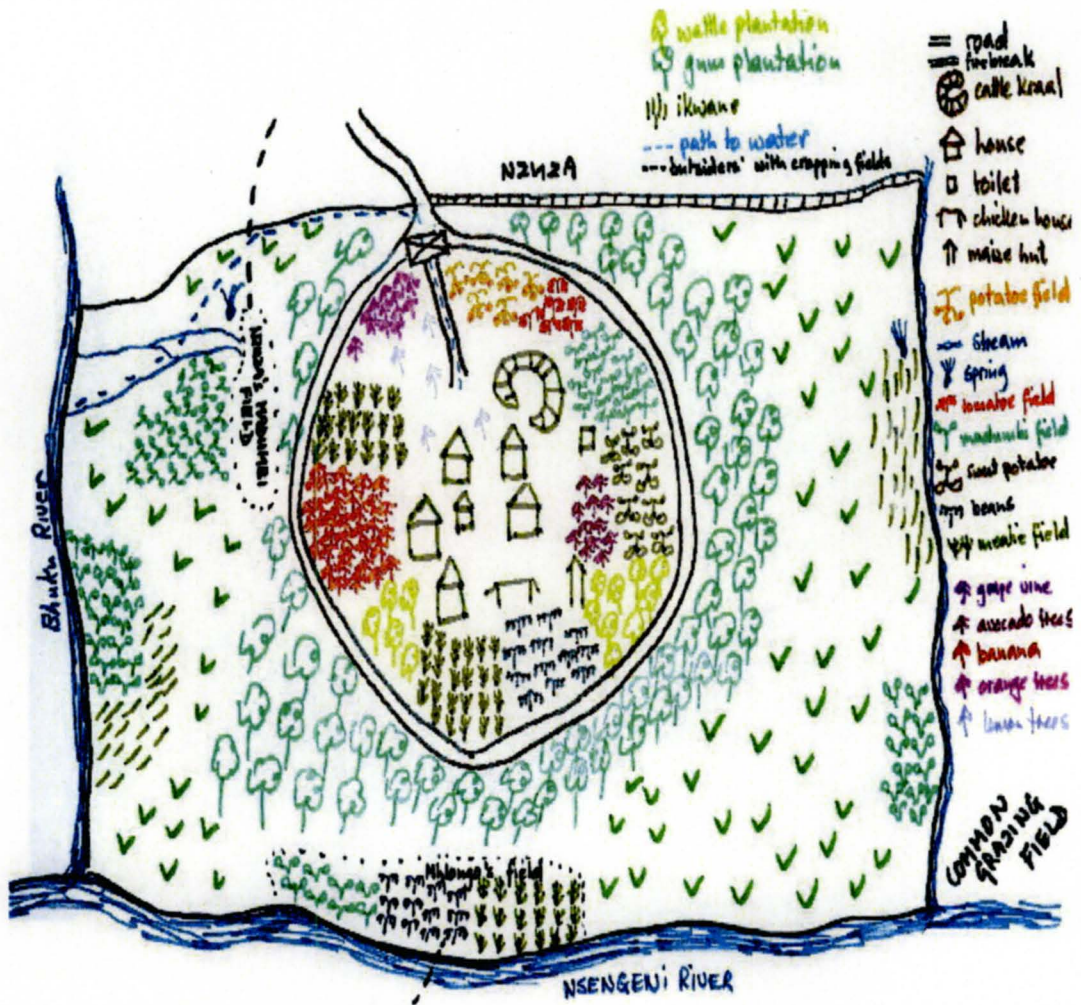 wattle plantation
gum plantation
ikwane
path to water
outsiders' with cropping fields
road
firebreak
cattle kraal
house
toilet
chicken house
maize hut
potatoe field
stream
spring
tomatoe field
madumbi field
sweet potatoe
beans
mealie field
grape vine
avocado trees
banana
orange trees
lemon trees
NZHZA
FIELD
Bhuku RIVER
Nhlongo's field
COMMON
GRAZING
FIELD
NSENGENI RIVER